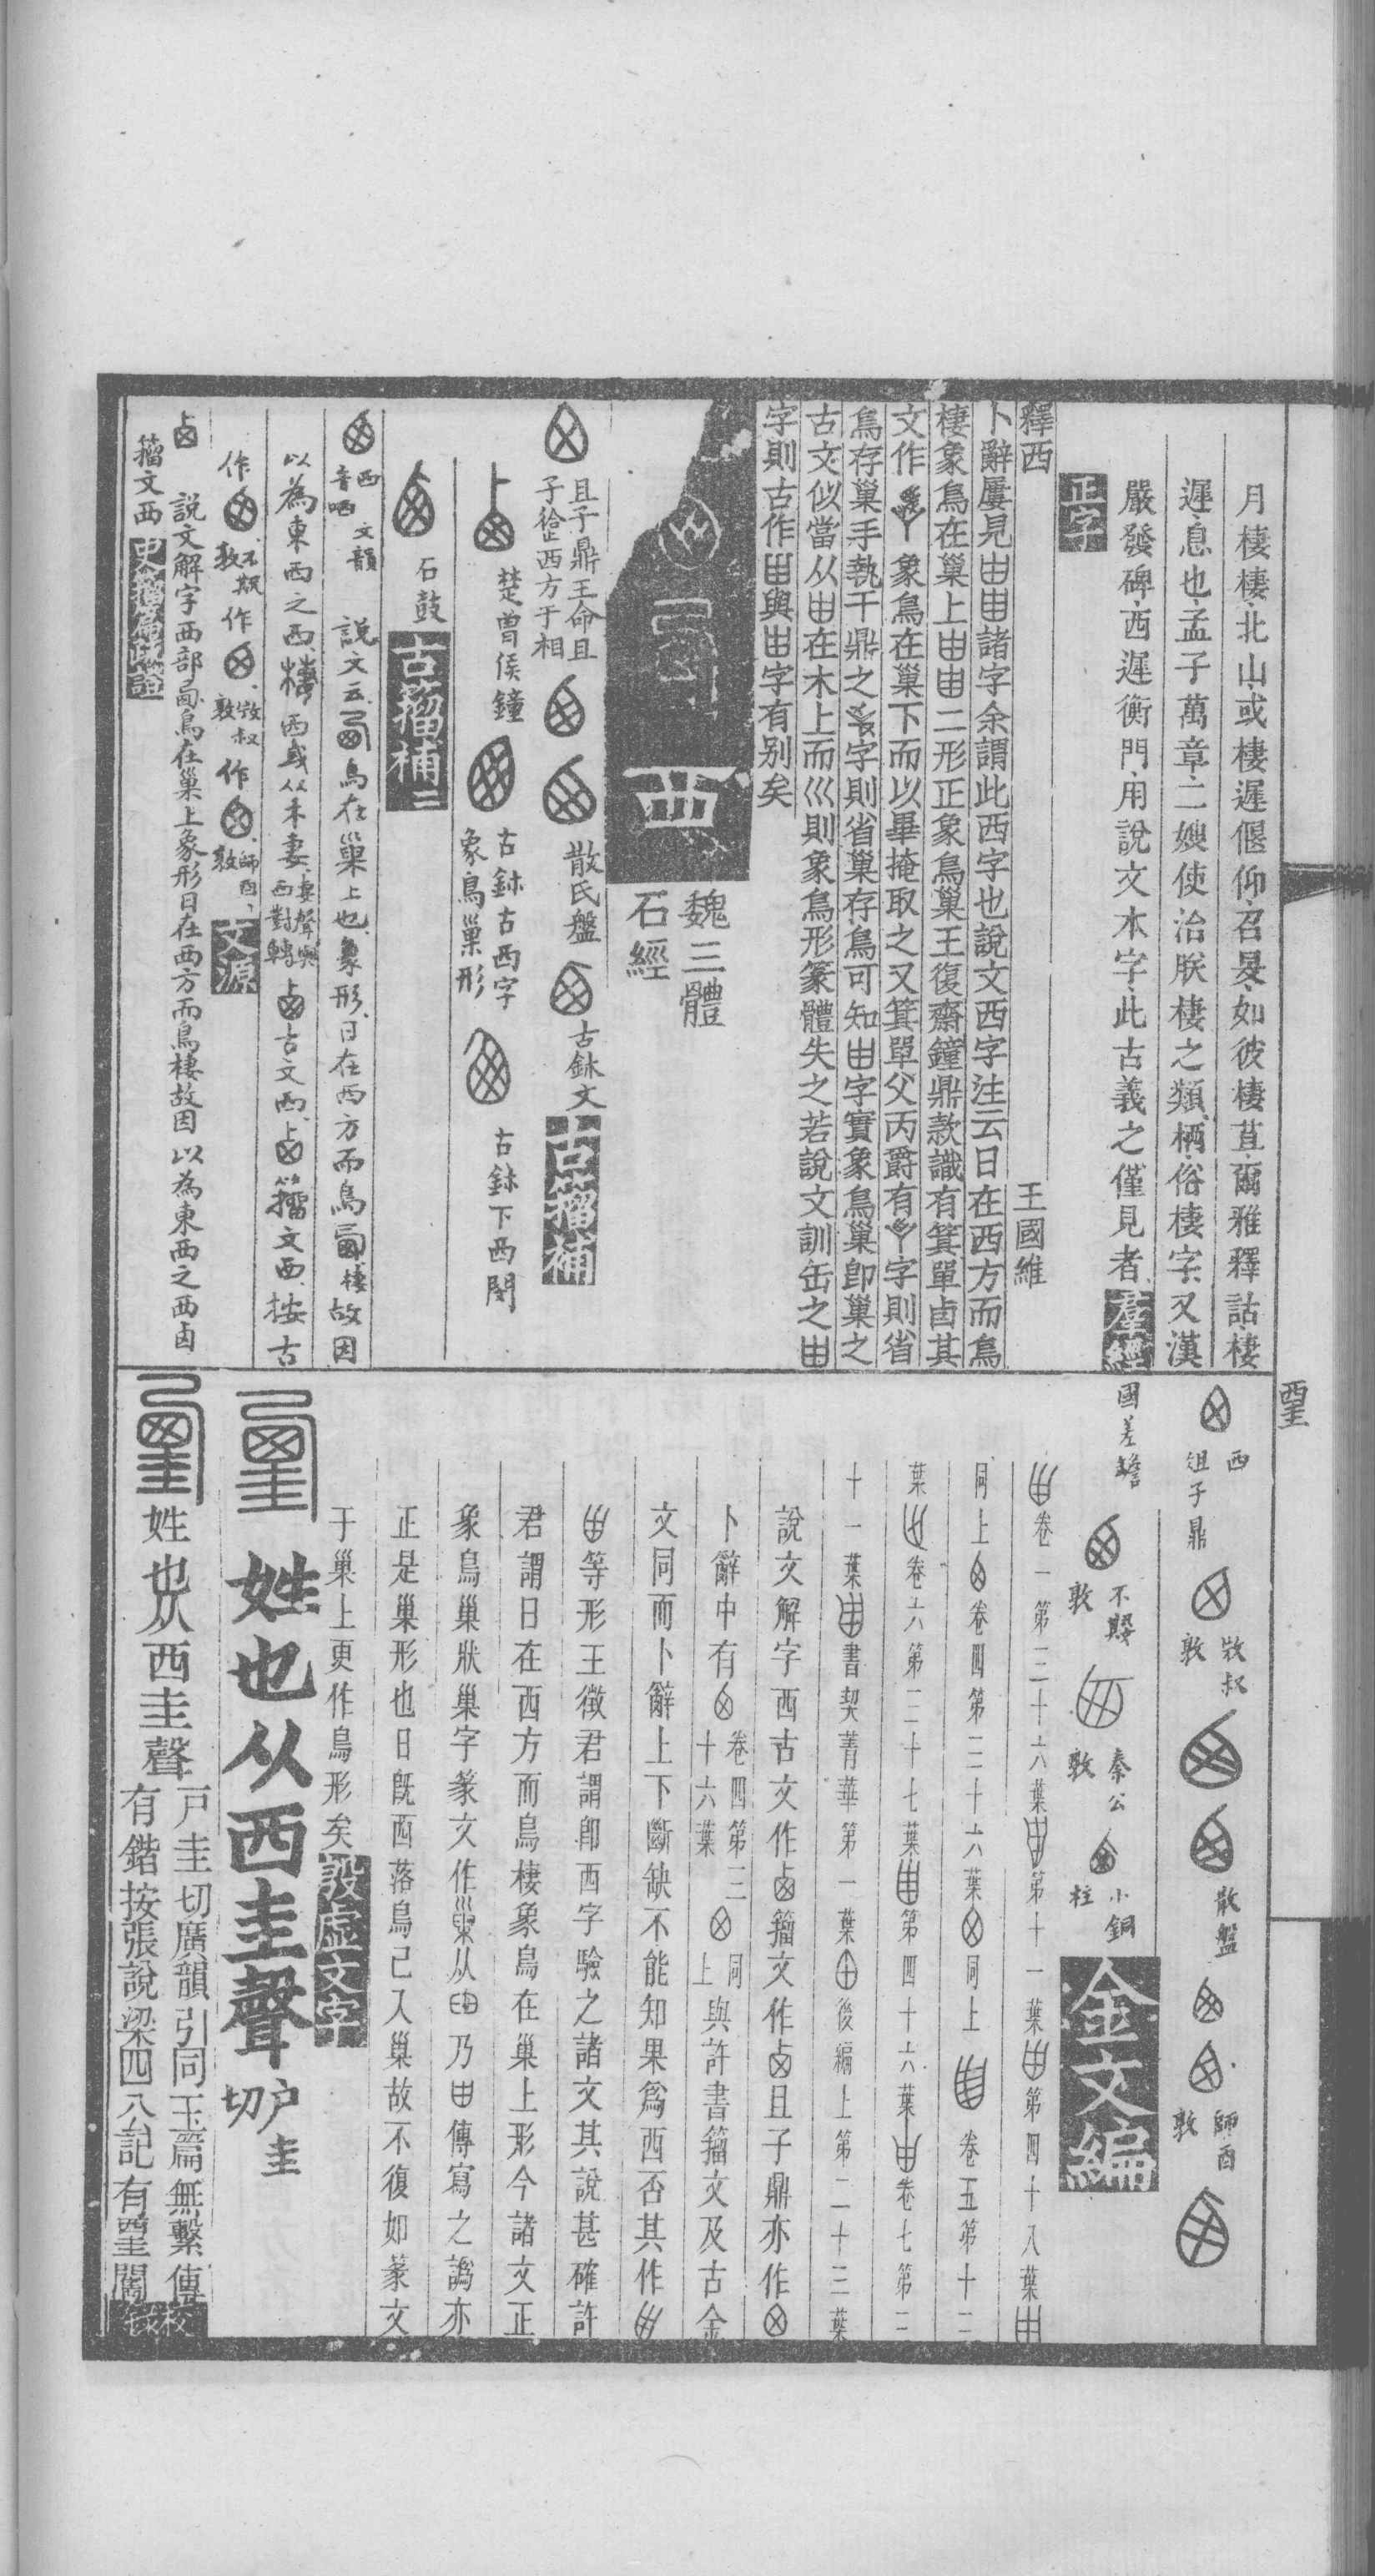 月棲棲北山或棲遲偃仰召旻如彼棲苴爾雅釋詁棲
遲息也孟子萬章二嫂使治朕棲之類栖俗棲字又漢
嚴發碑西遲衡門用說文本字此古義之僅見者羣經
正字
釋西 王國維
卜辭屢見諸字余謂此西字也說文西字注云日在西方而鳥
棲象鳥在巢上二形正象鳥巢王復齋鐘鼎款識有箕單卣其
文作象鳥在巢下而以畢掩取之又箕單父丙爵有字則省
鳥存巢手執干鼎之字則省巢存鳥可知字實象鳥巢即巢之
古文似當从在木上而巛則象鳥形篆體失之若說文訓缶之
字則古作與字有別矣
西
魏三體
石經
且子鼎王命且
子徣西方于相
散氏盤
古鉢文
古籀補
楚曾侯鐘
古鉢古西字
象鳥巢形
古鉢下西閔
石鼓
古籀補二
西
音哂
文韻
說文云鳥在巢上也象形日在西方而鳥棲故因
以為東西之西棲西或从木妻妻聲與
西對轉古文西籀文西按古
作不𡢁
敦作㪤叔
敦作師酉
敦文源
說文解字西部鳥在巢上象形日在西方而鳥棲故因以為東西之西卤
籀文西史籀篇疏證
垔
西
俎子鼎
㪤叔
敦
散盤
師酉
敦
國差𦉜
不𡢁
敦
秦公
敦
小銅
柱
金文編
卷一第三十六葉第十一葉第四十八葉
同上卷四第三十六葉同上卷五第十三
葉卷六第三十七葉第四十六葉卷七第三
十一葉書契菁華第一葉後編上第二十三葉
說文解字西古文作籀文作且子鼎亦作
卜辭中有卷四第三
十六葉同
上與許書籀文及古金
文同而卜辭上下斷缺不能知果為西否其作
等形王徵君謂即西字驗之諸文其說甚確許
君謂日在西方而鳥棲象鳥在巢上形今諸文正
象鳥巢狀巢字篆文作从乃傳寫之譌亦
正是巢形也日既西落鳥已入巢故不復如篆文
于巢上更作鳥形矣殷虛文字
姓也从西圭聲户圭
切
姓也从西圭聲
戸圭切廣韻引同玉篇無繫傳
有鍇按張說梁四公記有垔闔
校錄